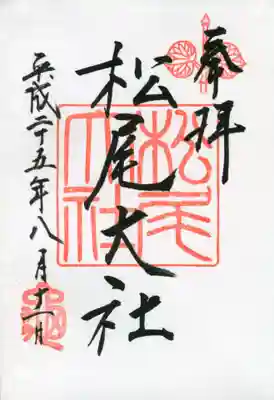 奉拝
松尾大社
平成二十五年八月十一日